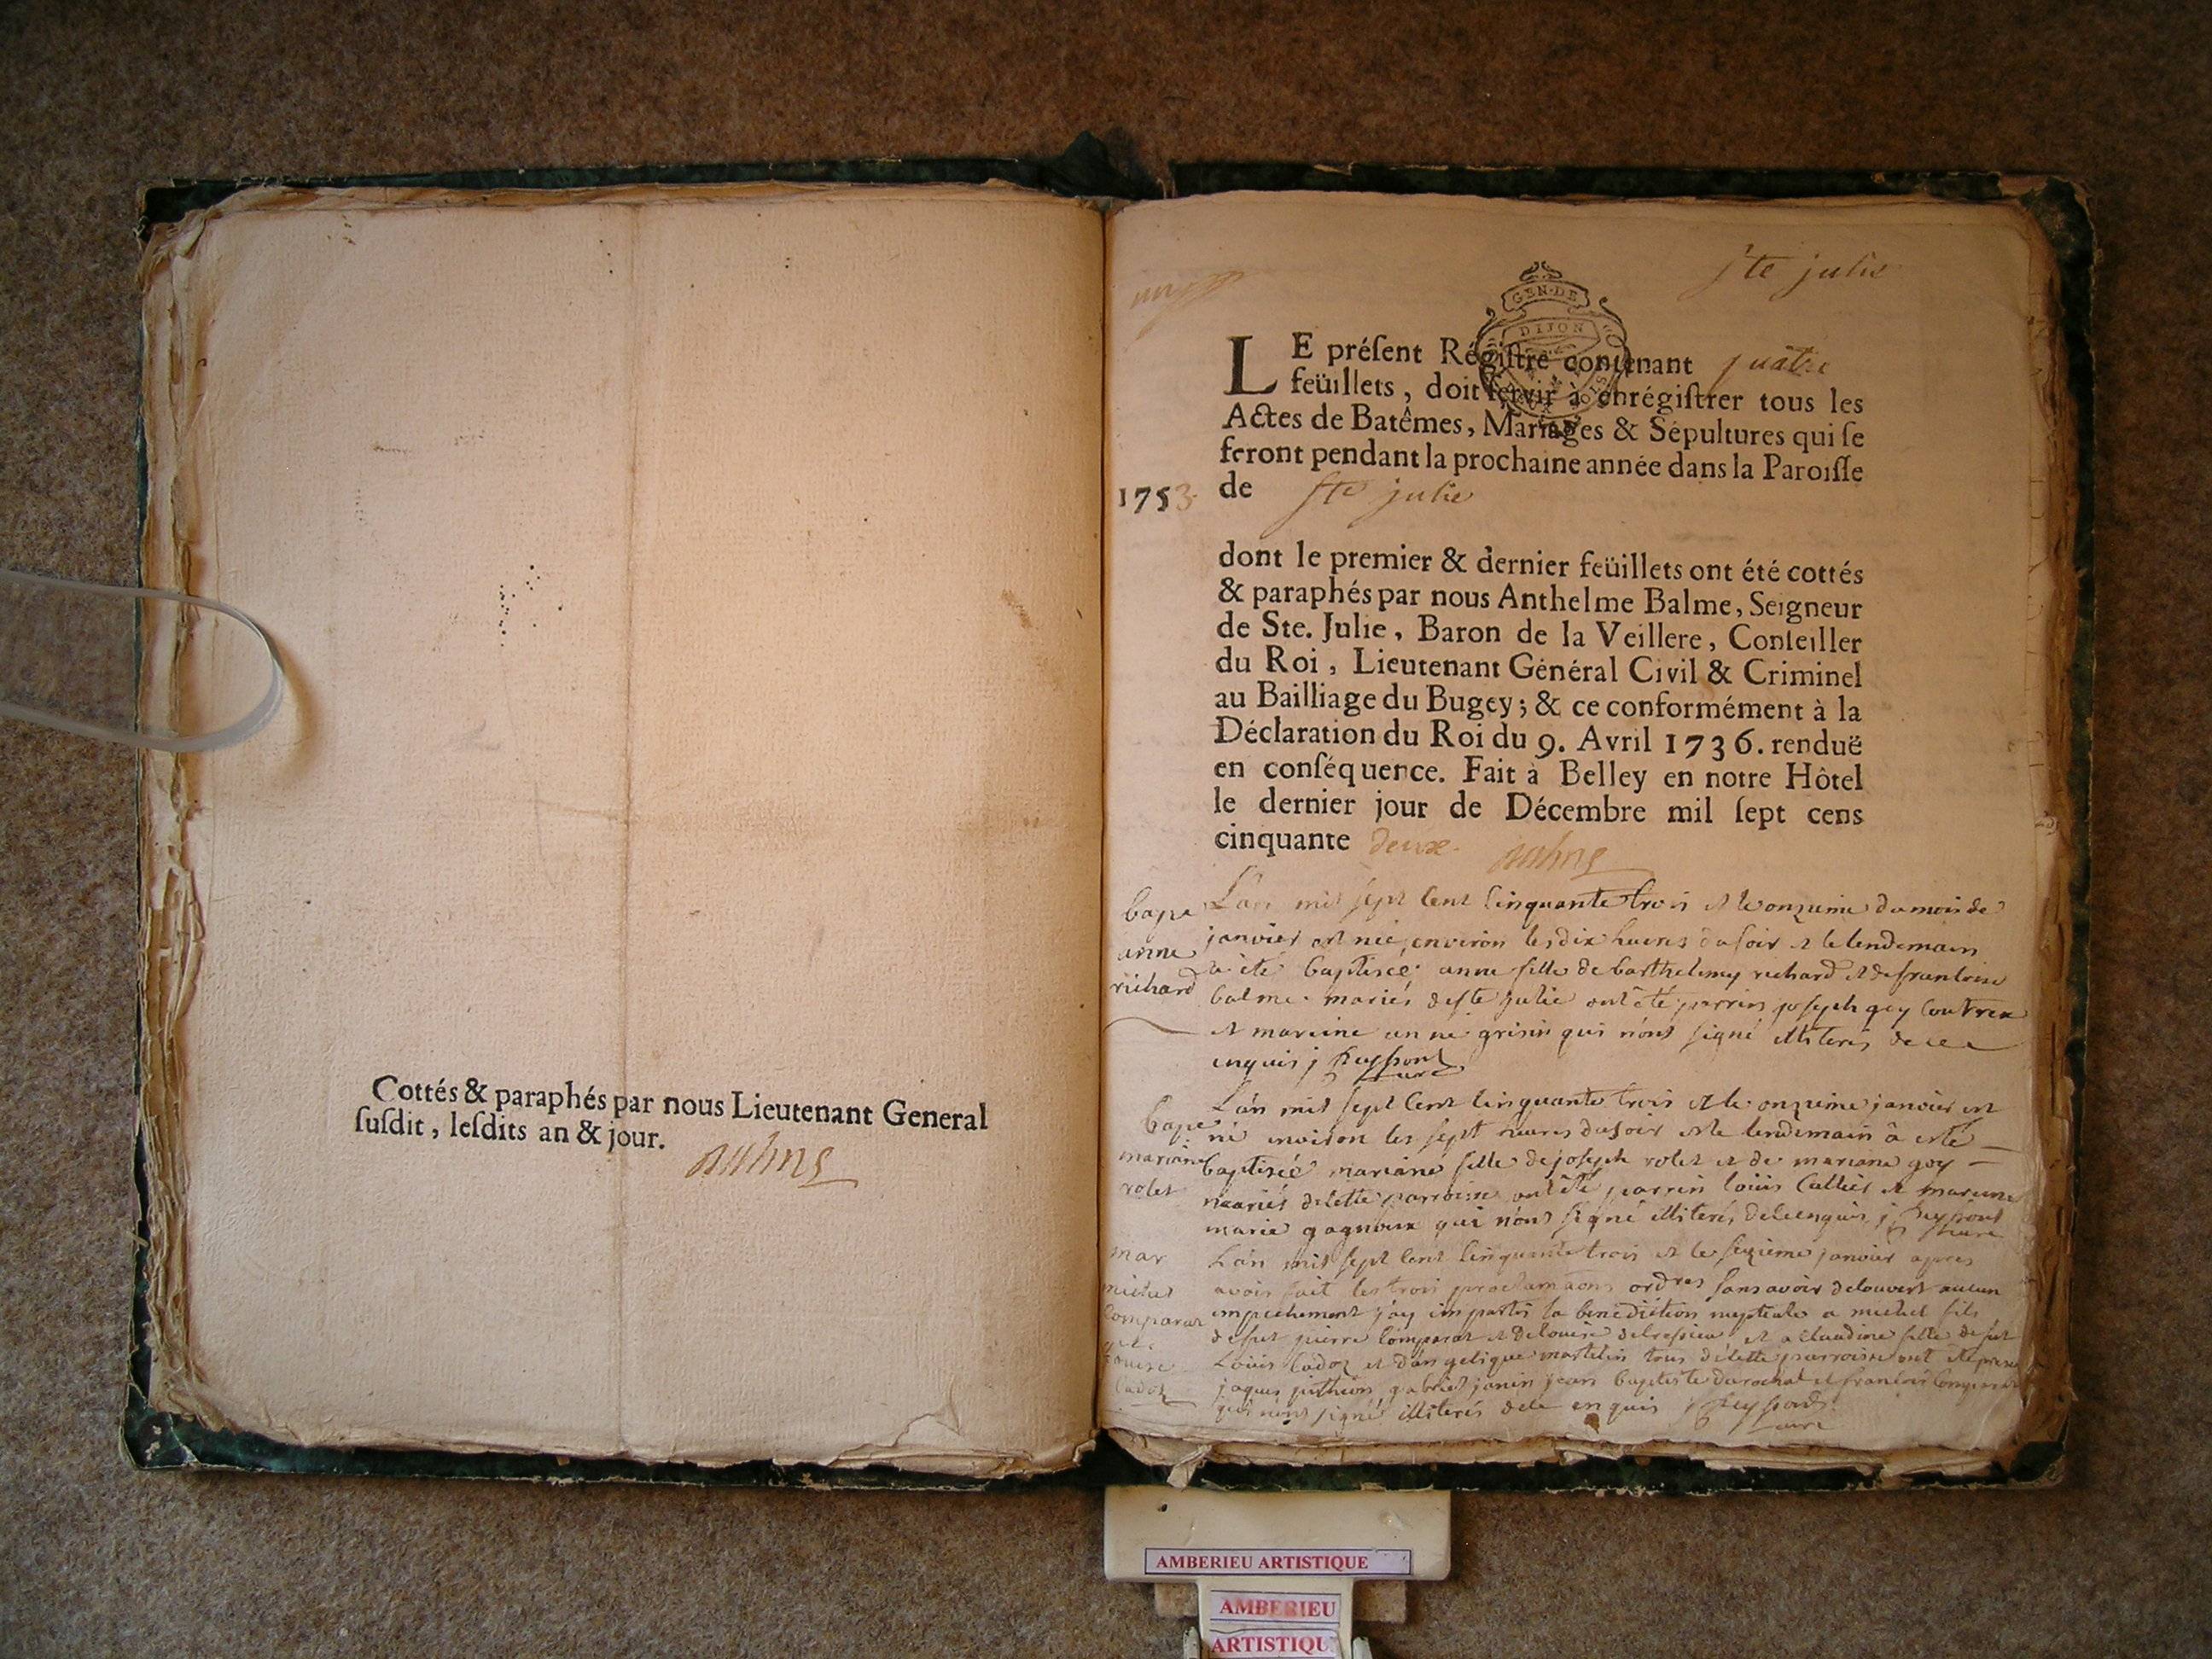 Cottés & paraphés par nous Lieutenant General
ſuſdit, leſdits an & jour.
Ste julie
GEN·DE
DIJON
LE préſent Régiſtre contenant quatre
feüillets, doit ſervir à enrégiſtrer tous les
Actes de Batêmes, Mariages & Sépultures qui ſe
feront pendant la prochaine année dans la Paroiſſe
1753. de Ste julie
dont le premier & dernier feüillets ont été cottés
& paraphés par nous Anthelme Balme, Seigneur
de Ste. Julie, Baron de la Veillere, Conſeiller
du Roi, Lieutenant Général Civil & Criminel
au Bailliage du Bugey; & ce conformément à la
Déclaration du Roi du 9. Avril 1736. renduë
en conſéquence. Fait à Belley en notre Hôtel
le dernier jour de Décembre mil ſept cens
cinquante deux.
bap
anne
richard
L'an mil sept cent cinquante trois et le onzieme du mois de
janvier est née environ les dix heures du soir et le lendemain
a été baptisée anne fille de barthelemy richard et de francoise
balme mariés de ste julie ont été parrin joseph goy
et mareine anne grisin qui n'ont signé illiterés de ce
enquis j curé
bap
mariane
rolet
L'an mil sept cent cinquante trois et le onzieme janvier est
né environ les sept heures du soir et le lendemain a esté
baptisée mariane fille de joseph rolet et de mariane goy
mariés de cette parroisse ont été parrein louis et mareine
marie qui n'ont signé illiterés de ce enquis j curé
mar
michel
comparat
et
cadoz
L'an mil sept cent cinquante trois et le seizieme janvier apres
avoir fait les trois proclamaons ordres sans avoir decouvert aucun
empechement j'ay imparti la benediction nuptiale a michel fils
de fut pierre comparat et de louise et a claudine fille de fut
Louis cadoz et d'angelique martelin tous de cette parroisse ont été
jaques gabriel janin jean baptiste durochat et francois
qui n'ont signés illiterés de ce enquis j curé
AMBERIEU ARTISTIQUE
AMBERIEU
ARTISTIQU